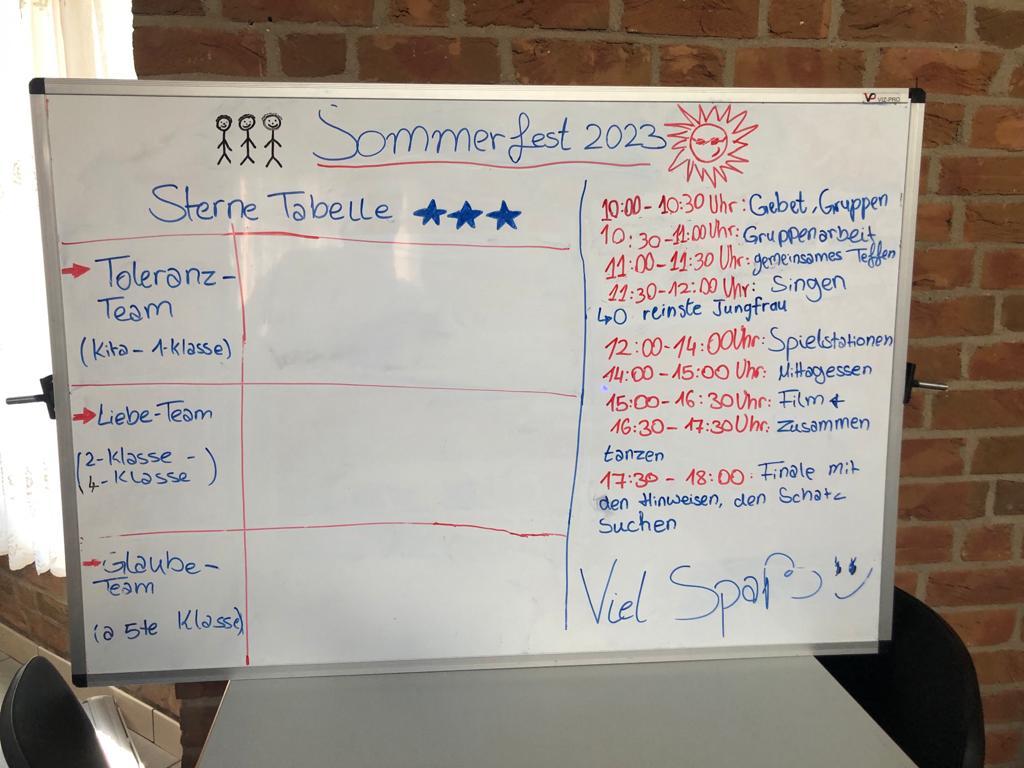 VIZ-PRO
Sommerfest 2023
Sterne Tabelle
Toleranz-
Team
(Kita - 1-Klasse)
Liebe-Team
(2-Klasse -
4-Klasse)
Glaube-
Team
(a 5te Klasse)
10:00 - 10:30 Uhr: Gebet, Gruppen
10:30 - 11:00 Uhr: Gruppenarbeit
11:00 - 11:30 Uhr: gemeinsames Teffen
11:30 - 12:00 Uhr: Singen
↳ O reinste Jungfrau
12:00 - 14:00 Uhr: Spielstationen
14:00 - 15:00 Uhr: Mittagessen
15:00 - 16:30 Uhr: Film +
16:30 - 17:30 Uhr: Zusammen
tanzen
17:30 - 18:00: Finale mit
den Hinweisen, den Schatz
Suchen
Viel Spaß